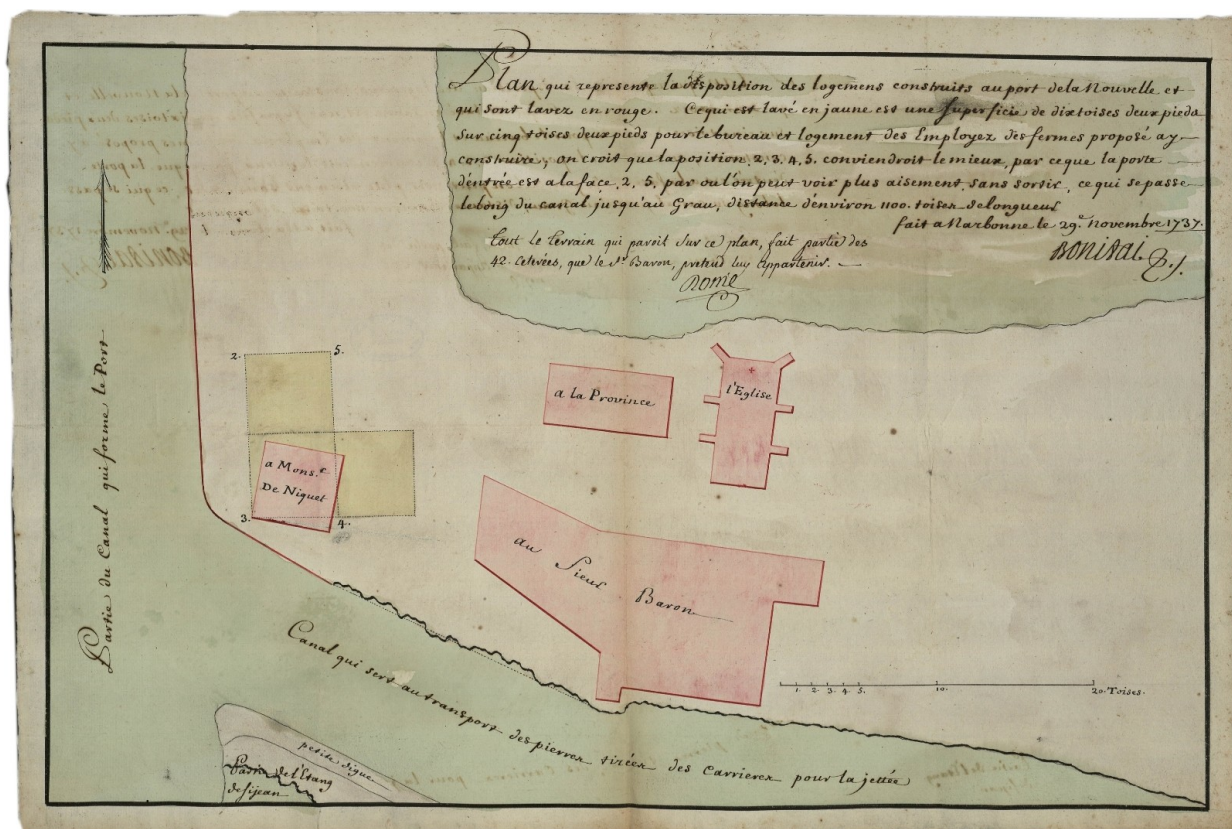 Plan qui represente la disposition des logemens construits au port de la Nouvelle et
qui sont lavez en rouge. Ce qui est lavé en jaune est une Superficie de dix toises deux pieds
sur cinq toises deux pieds pour le bureau et logement des Employez des fermes proposé a y
construire, on croit que la position, 2, 3, 4, 5. conviendroit le mieux, par ce que la porte
d'entrée est a la face, 2, 5, par ou l'on peut voir plus aisement, sans sortir, ce qui se passe
le long du canal jusqu'au Grau, distance d'environ 1100. toises de longueur
fait a Narbonne le 29.e Novembre 1737.
Tout le terrain qui paroit sur ce plan, fait partie des
42. Ceterées, que le Sr. Baron, pretend luy appartenir.
Rome
Partie du Canal qui forme le Port
2.
5.
3.
4.
a Mons.r
De Niquet
a la Province
l'Eglise
au Sieur Baron
1. 2. 3. 4. 5. 10. 20. Toises.
Canal qui sert au transport des pierres tirées des Carrieres pour la jettée
petite digue
Partie de l'Etang
de sijean